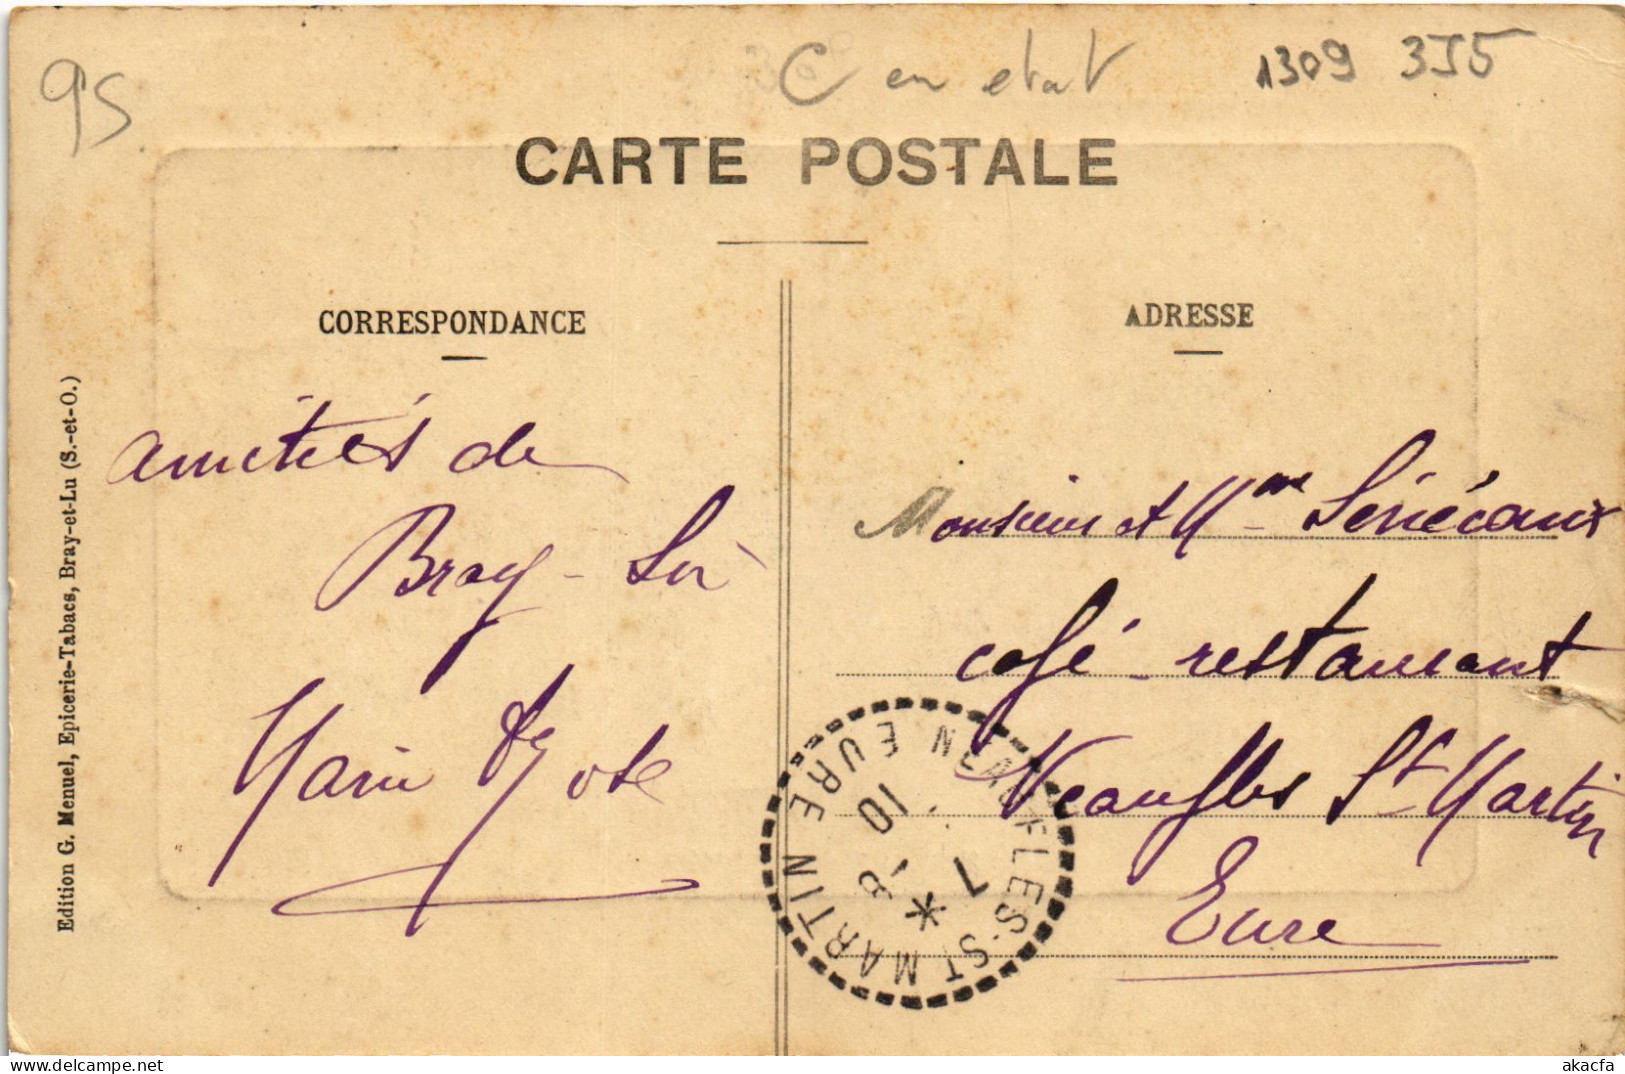 95
C en etat
1309 355
CARTE POSTALE
CORRESPONDANCE
ADRESSE
Edition G. Menuel, Epicerie-Tabacs, Bray-et-Lu (S.-et-O.)
amitiés de
Bray-Lû
Marie
Monsieur et Mme Sénécaux
café-restaurant
Veaufles St Martin
Eure
NEAUFLES-ST MARTIN EURE
10
7 -8
*
akacfa